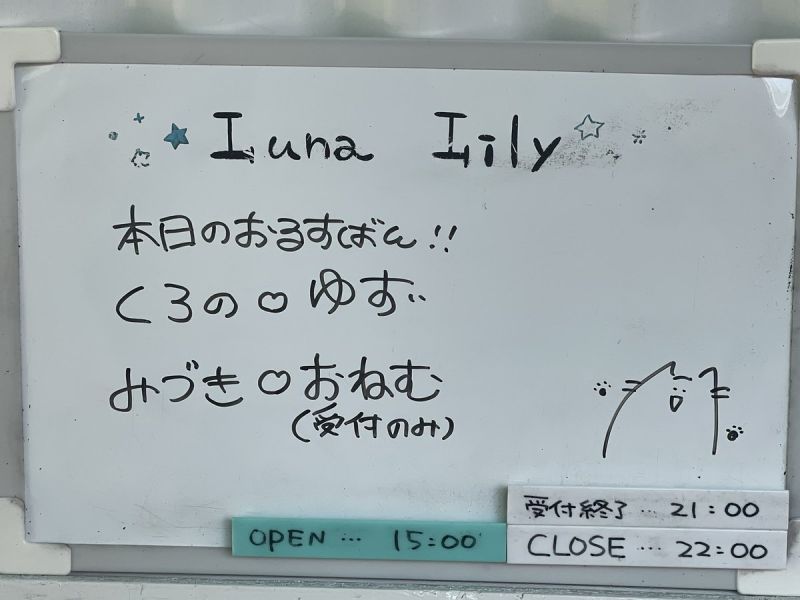 Luna Lily
本日のおるすばん!!
くろの♡ゆず
みづき♡おねむ
(受付のみ)
受付終了…21:00
OPEN…15:00
CLOSE…22:00